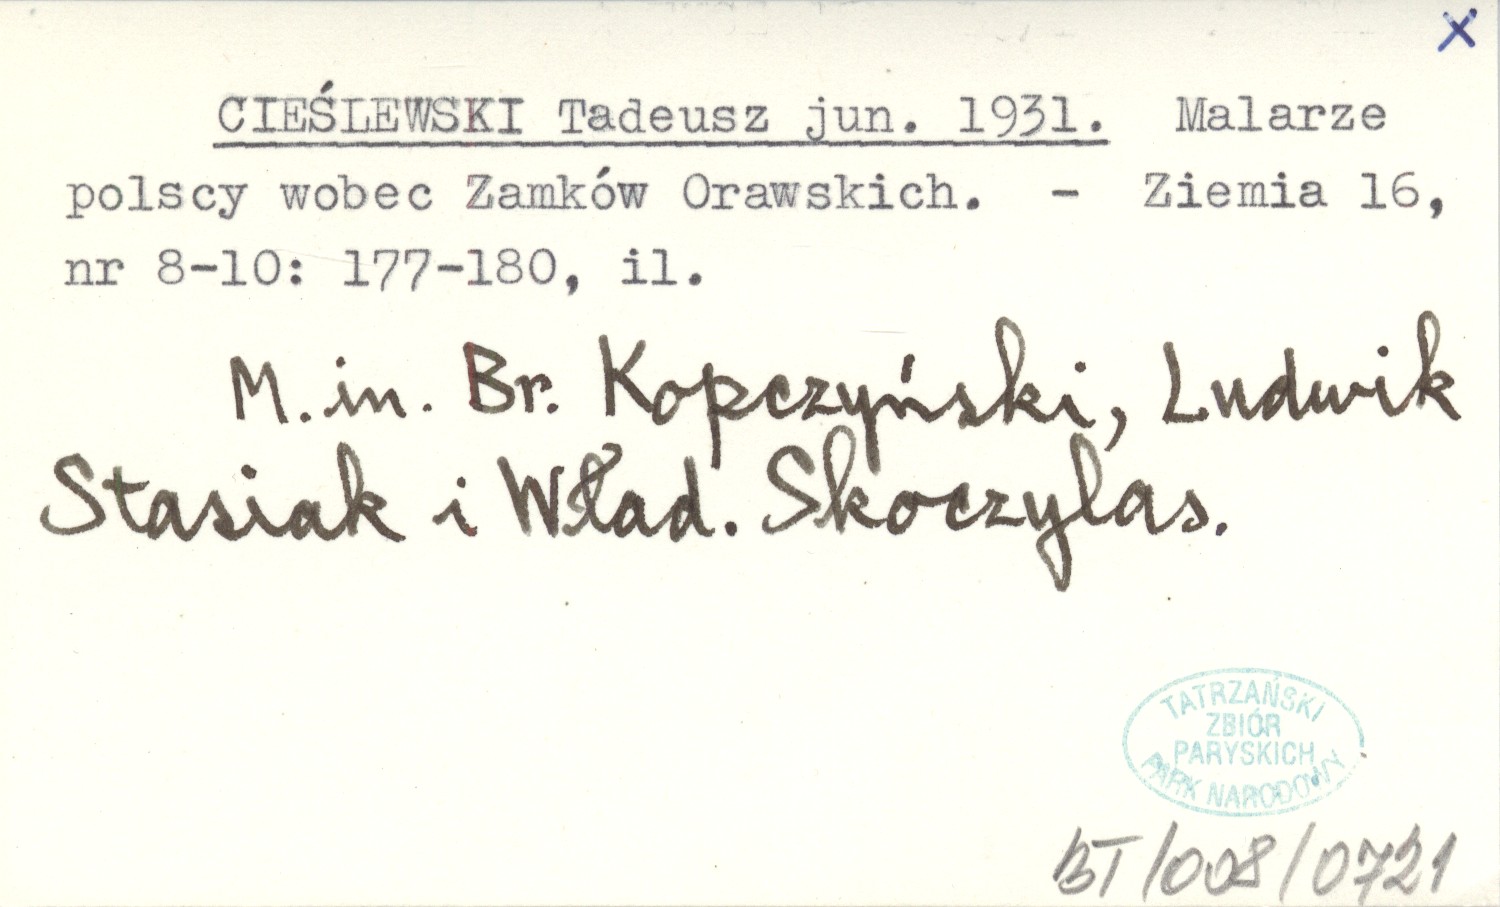 x
CIEŚLEWSKI Tadeusz jun. 1931. Malarze
polscy wobec Zamków Orawskich. - Ziemia 16,
nr 8-10: 177-180, il.
M.in. Br. Kopczyński, Ludwik
Stasiak i Wład. Skoczylas.
TATRZAŃSKI
ZBIÓR
PARYSKICH
PARK NARODOWY
BT/008/0721